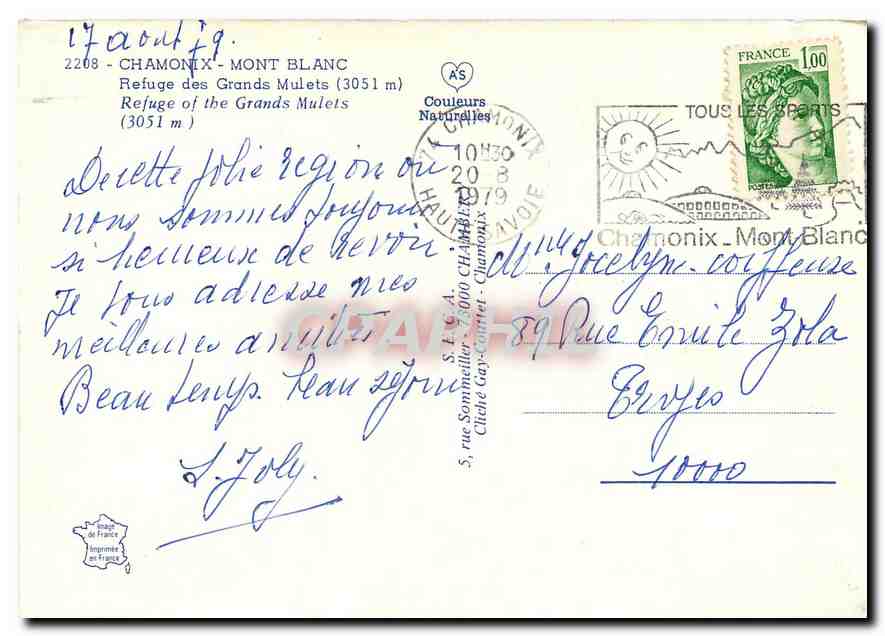 17 aout 79.
2208 - CHAMONIX - MONT BLANC
Refuge des Grands Mulets (3051 m)
Refuge of the Grands Mulets
(3051 m)
AS
Couleurs
Naturelles
74 CHAMONIX
10H30
20 8
1979
HAUTE SAVOIE
FRANCE 1,00
POSTES
TOUS LES SPORTS
Chamonix_Mont Blanc
De cette jolie region ou
nous sommes toujours
si heureux de revoir.
Je vous adresse mes
meilleures amitiés
Beau temps. beau séjour
S. Joly.
S.E.C.A.
5, rue Sommeiller - 73000 CHAMBERY
Cliché Gay-Couttet - Chamonix
Mlle Jocelyn-coiffeuse
89 Rue Emile Zola
Troyes
10000
Image
de France
Imprimée
en France
CPAPHIL